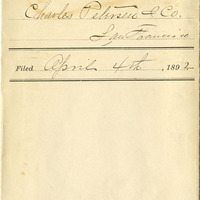 Charles Petersen & Co.
San Francisco
Filed April 4th, 1892